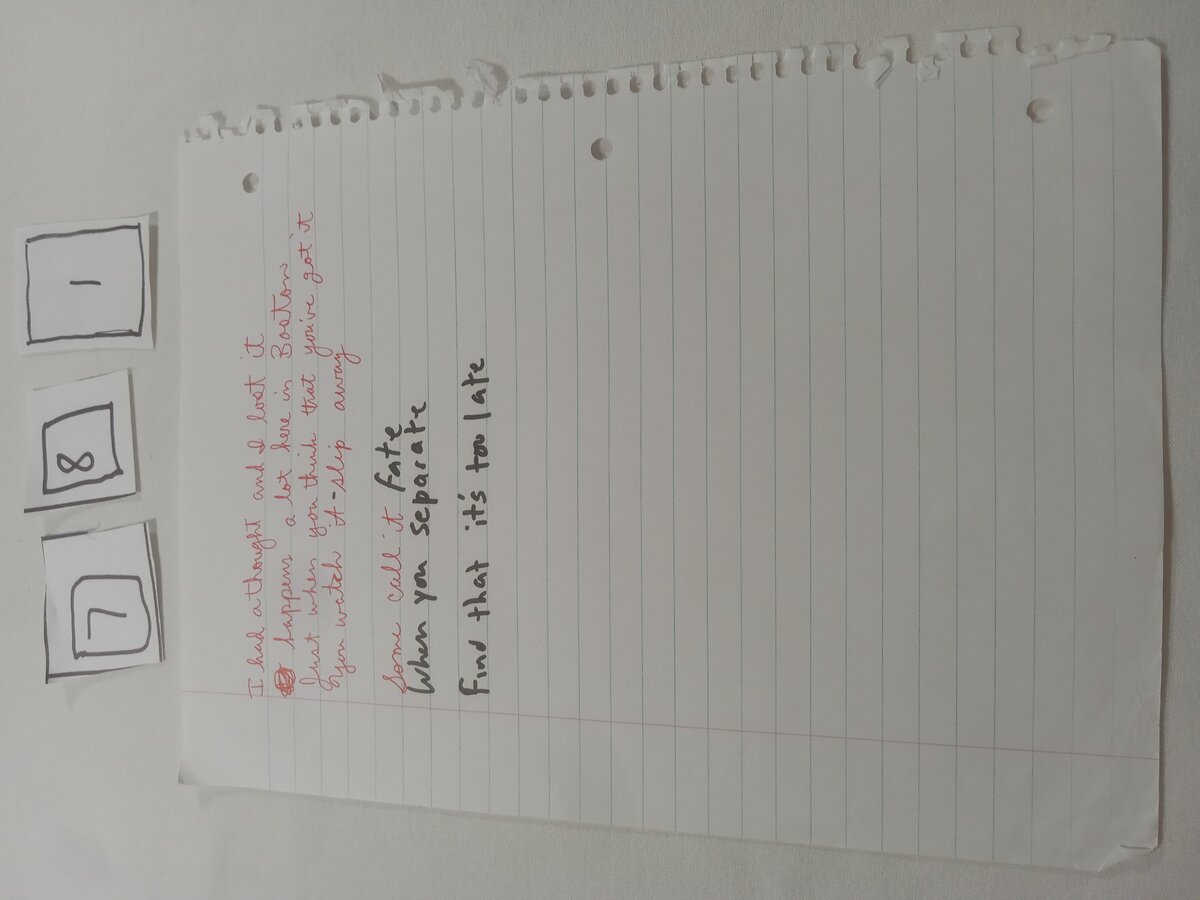 7 8 1
I had a thought and I lost it
happens a lot here in Boston
Just when you think that you've got it
You watch it - slip away
Some call it fate
When you separate
Find that it's too late